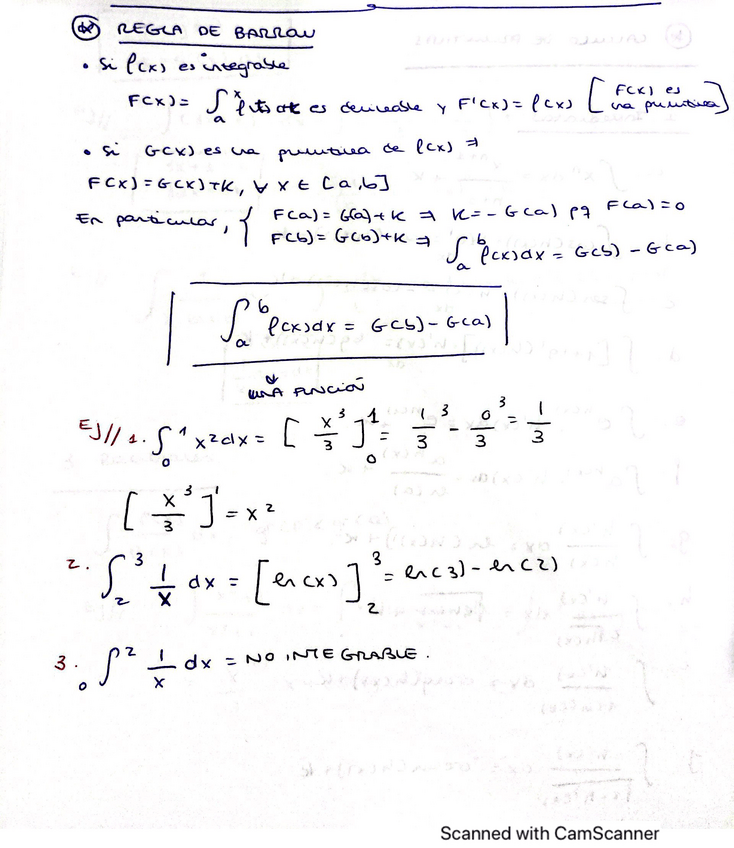 REGLA DE BARROW
• Si f(x) es integrable
F(x) = ∫ₐˣ f(t) dt es derivable y F'(x) = f(x) [F(x) es una primitiva]
• Si G(x) es una primitiva de f(x) ⇒
F(x) = G(x) + K, ∀ x ∈ [a,b]
En particular, { F(a) = G(a) + K ⇒ K = - G(a) pq F(a) = 0
F(b) = G(b) + K ⇒ ∫ₐᵇ f(x)dx = G(b) - G(a)
∫ₐᵇ f(x)dx = G(b) - G(a)
UNA FUNCIÓN
EJ// 1. ∫₀¹ x²dx = [x³/3]₀¹ = 1³/3 - 0³/3 = 1/3
[x³/3]' = x²
2. ∫₂³ 1/x dx = [ln(x)]₂³ = ln(3) - ln(2)
3. ∫₀² 1/x dx = NO INTEGRABLE.
Scanned with CamScanner